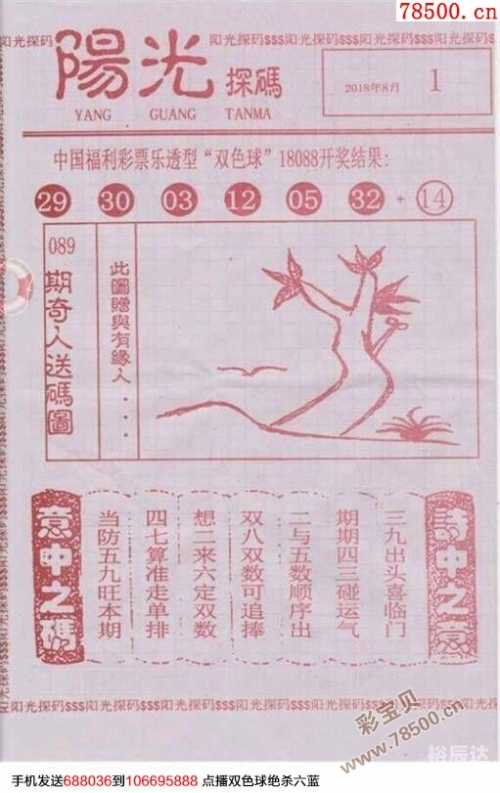 78500.cn
阳光探码$$$阳光探码$$$阳光探码$$$阳光探码$$$阳光探码
陽光探碼
YANG GUANG TANMA
2018年8月 1
中国福利彩票乐透型“双色球”18088开奖结果:
29 30 03 12 05 32 + 14
089期奇人送碼圖
此圖贈與有緣人....
詩中之意
三九出头喜临门
期期四三碰运气
二与五数顺序出
双八双数可追捧
想二来六定双数
四七算准走单排
当防五九旺本期
意中之碼
阳光探码$$$阳光探码$$$阳光探码$$$阳光探码$$$阳光探码$$$阳光探码
彩宝贝
www.78500.cn
裕辰达
手机发送688036到106695888 点播双色球绝杀六蓝